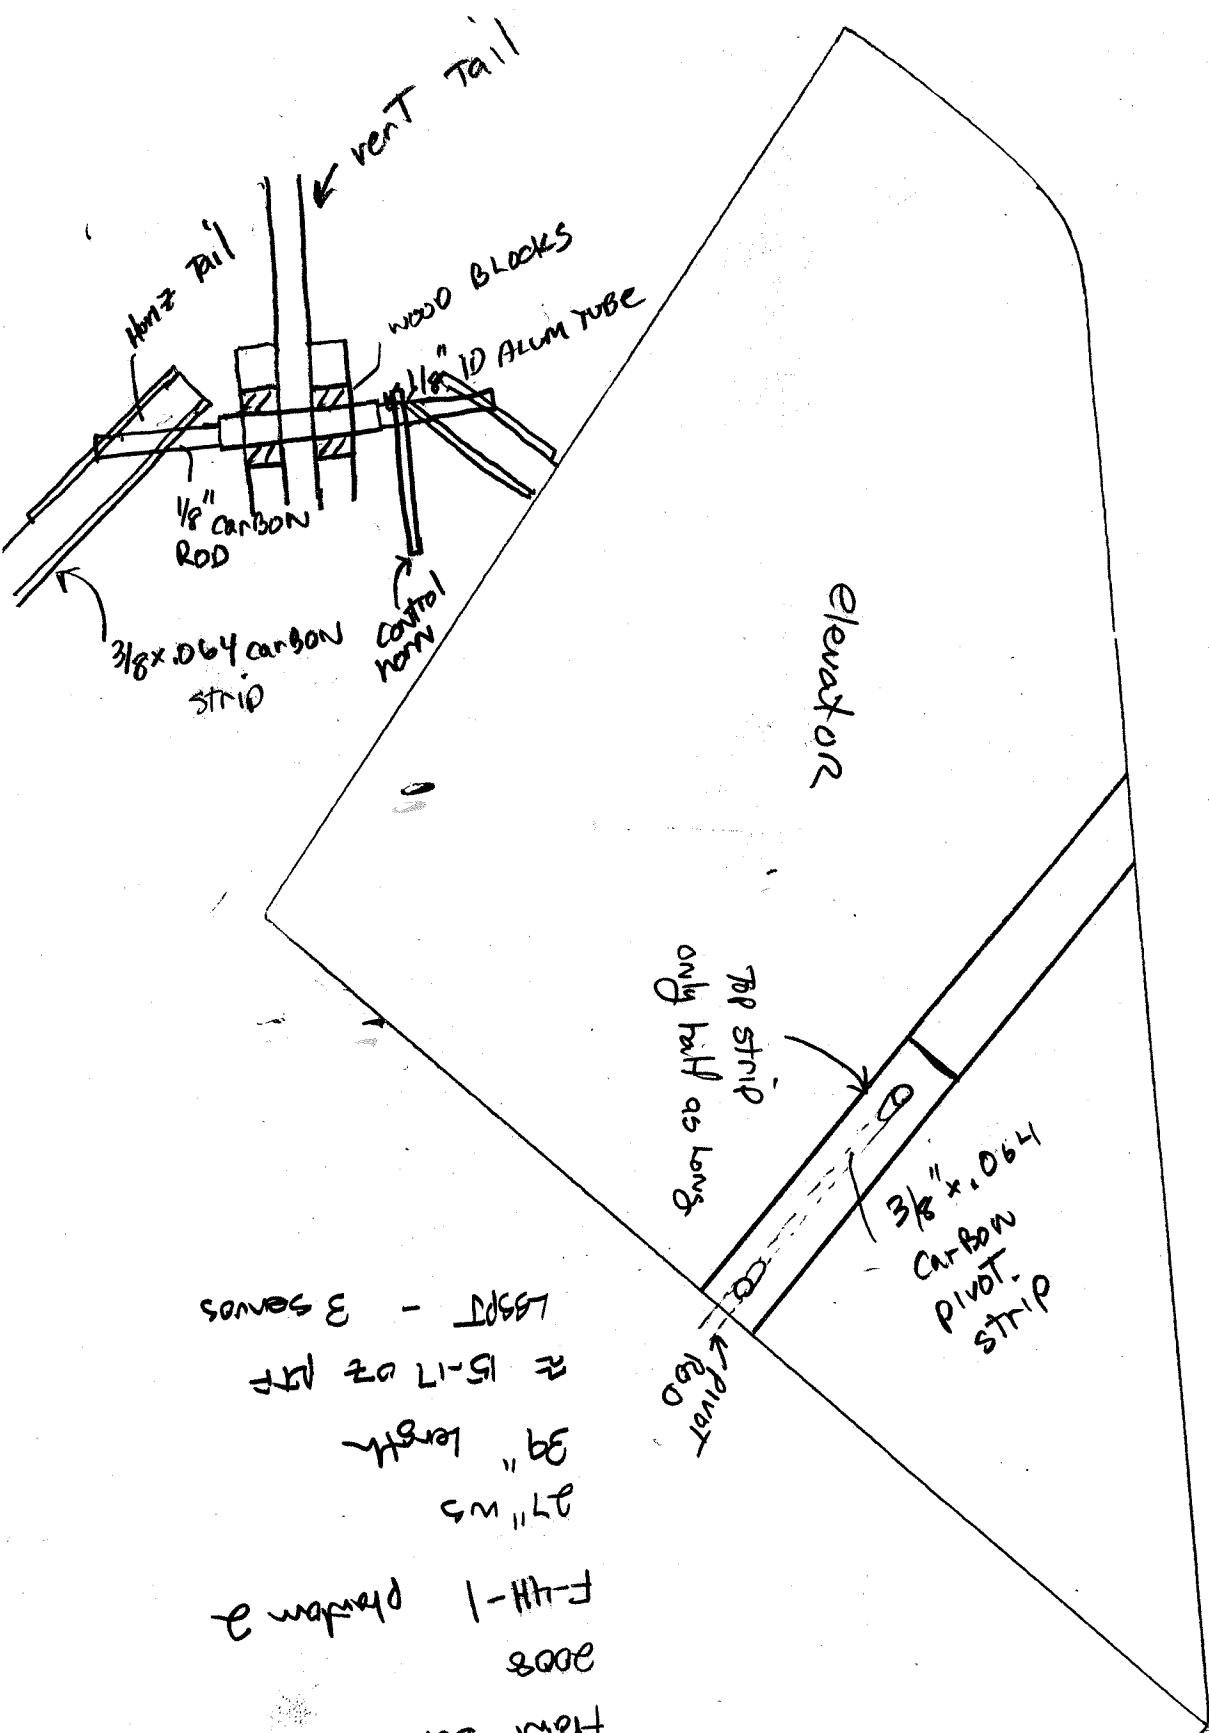 verT Tail
Horiz Tail
WOOD BLOCKS
1/8" ID ALUM TUBE
1/8" carBON
ROD
control
horn
3/8 x .064 carBON
strip
elevatOR
TOP strip
only half as Long
3/8" x .064
carBon
pivot
strip
PIVOT
ROD
2008
F-4H-1 phantom 2
27" WS
39" Length
≈ 15-17 oz RTF
- 3 servos